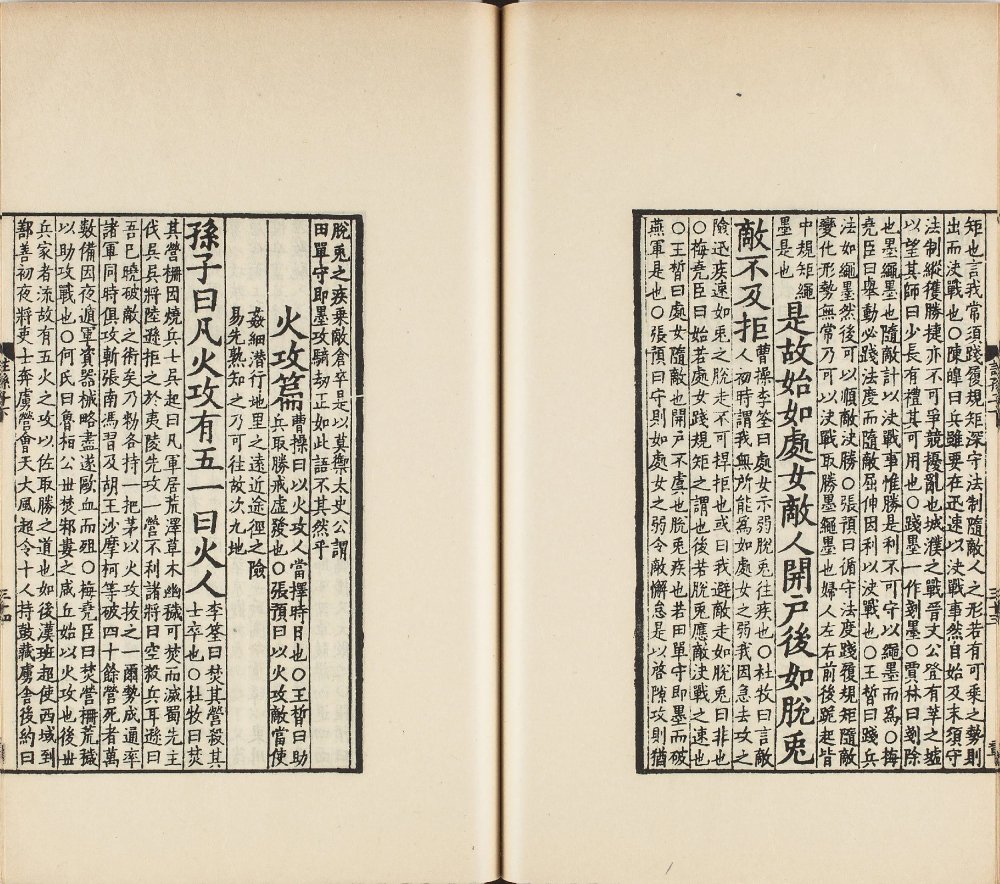 矩也言我常須踐履規矩深守法制隨敵人之形若有可乘之勢則
出而決戰也○陳皥曰兵雖要在迅速以決戰事然自始及末須守
法制縱獲勝捷亦不可爭競擾亂也城濮之戰晉文公登有莘之墟
以望其師曰少長有禮其可用也○踐墨一作剗墨○賈林曰剗除
也墨繩墨也隨敵計以決戰事惟勝是利不可守以繩墨而爲○梅
堯臣曰舉動必踐法度而隨敵屈伸因利以決戰也○王晳曰踐兵
法如繩墨然後可以順敵決勝○張預曰循守法度踐履規矩隨敵
變化形勢無常乃可以決戰取勝墨繩墨也婦人左右前後跪起皆
中規矩繩
墨是也
是故始如處女敵人開戶後如脫兔
敵不及拒
曹操李筌曰處女示弱脫兔往疾也○杜牧曰言敵
人初時謂我無所能爲如處女之弱我因急去攻之
險迅疾速如兔之脫走不可捍拒也或曰我避敵走如脫兔曰非也
○梅堯臣曰始若處女踐規矩之謂也後若脫兔應敵決戰之速也
○王晳曰處女隨敵也開戶不虞也脫兔疾也若田單守即墨而破
燕軍是也○張預曰守則如處女之弱令敵懈怠是以啓隙攻則猶
脫兔之疾乘敵倉卒是以莫禦太史公謂
田單守即墨攻騎劫正如此語不其然乎
火攻篇
曹操曰以火攻人當擇時日也○王晳曰助
兵取勝戒虛發也○張預曰以火攻敵當使
姦細潛行地里之遠近途徑之險
易先熟知之乃可往故次九地
孫子曰凡火攻有五一曰火人
李筌曰焚其營殺其
士卒也○杜牧曰焚
其營柵因燒兵士吳起曰凡軍居荒澤草木幽穢可焚而滅蜀先主
伐吳吳將陸遜拒之於夷陵先攻一營不利諸將曰空殺兵耳遜曰
吾已曉破敵之術矣乃勑各持一把茅以火攻拔之一爾勢成通率
諸軍同時俱攻斬張南馮習及胡王沙摩柯等破四十餘營死者萬
數備因夜遁軍資器械略盡遂歐血而殂○梅堯臣曰焚營柵荒穢
以助攻戰也○何氏曰魯桓公世焚邾婁之咸丘始以火攻也後世
兵家者流故有五火之攻以佐取勝之道也如後漢班超使西域到
鄯善初夜將吏士奔虜營會天大風超令十人持鼓藏虜舍後約曰